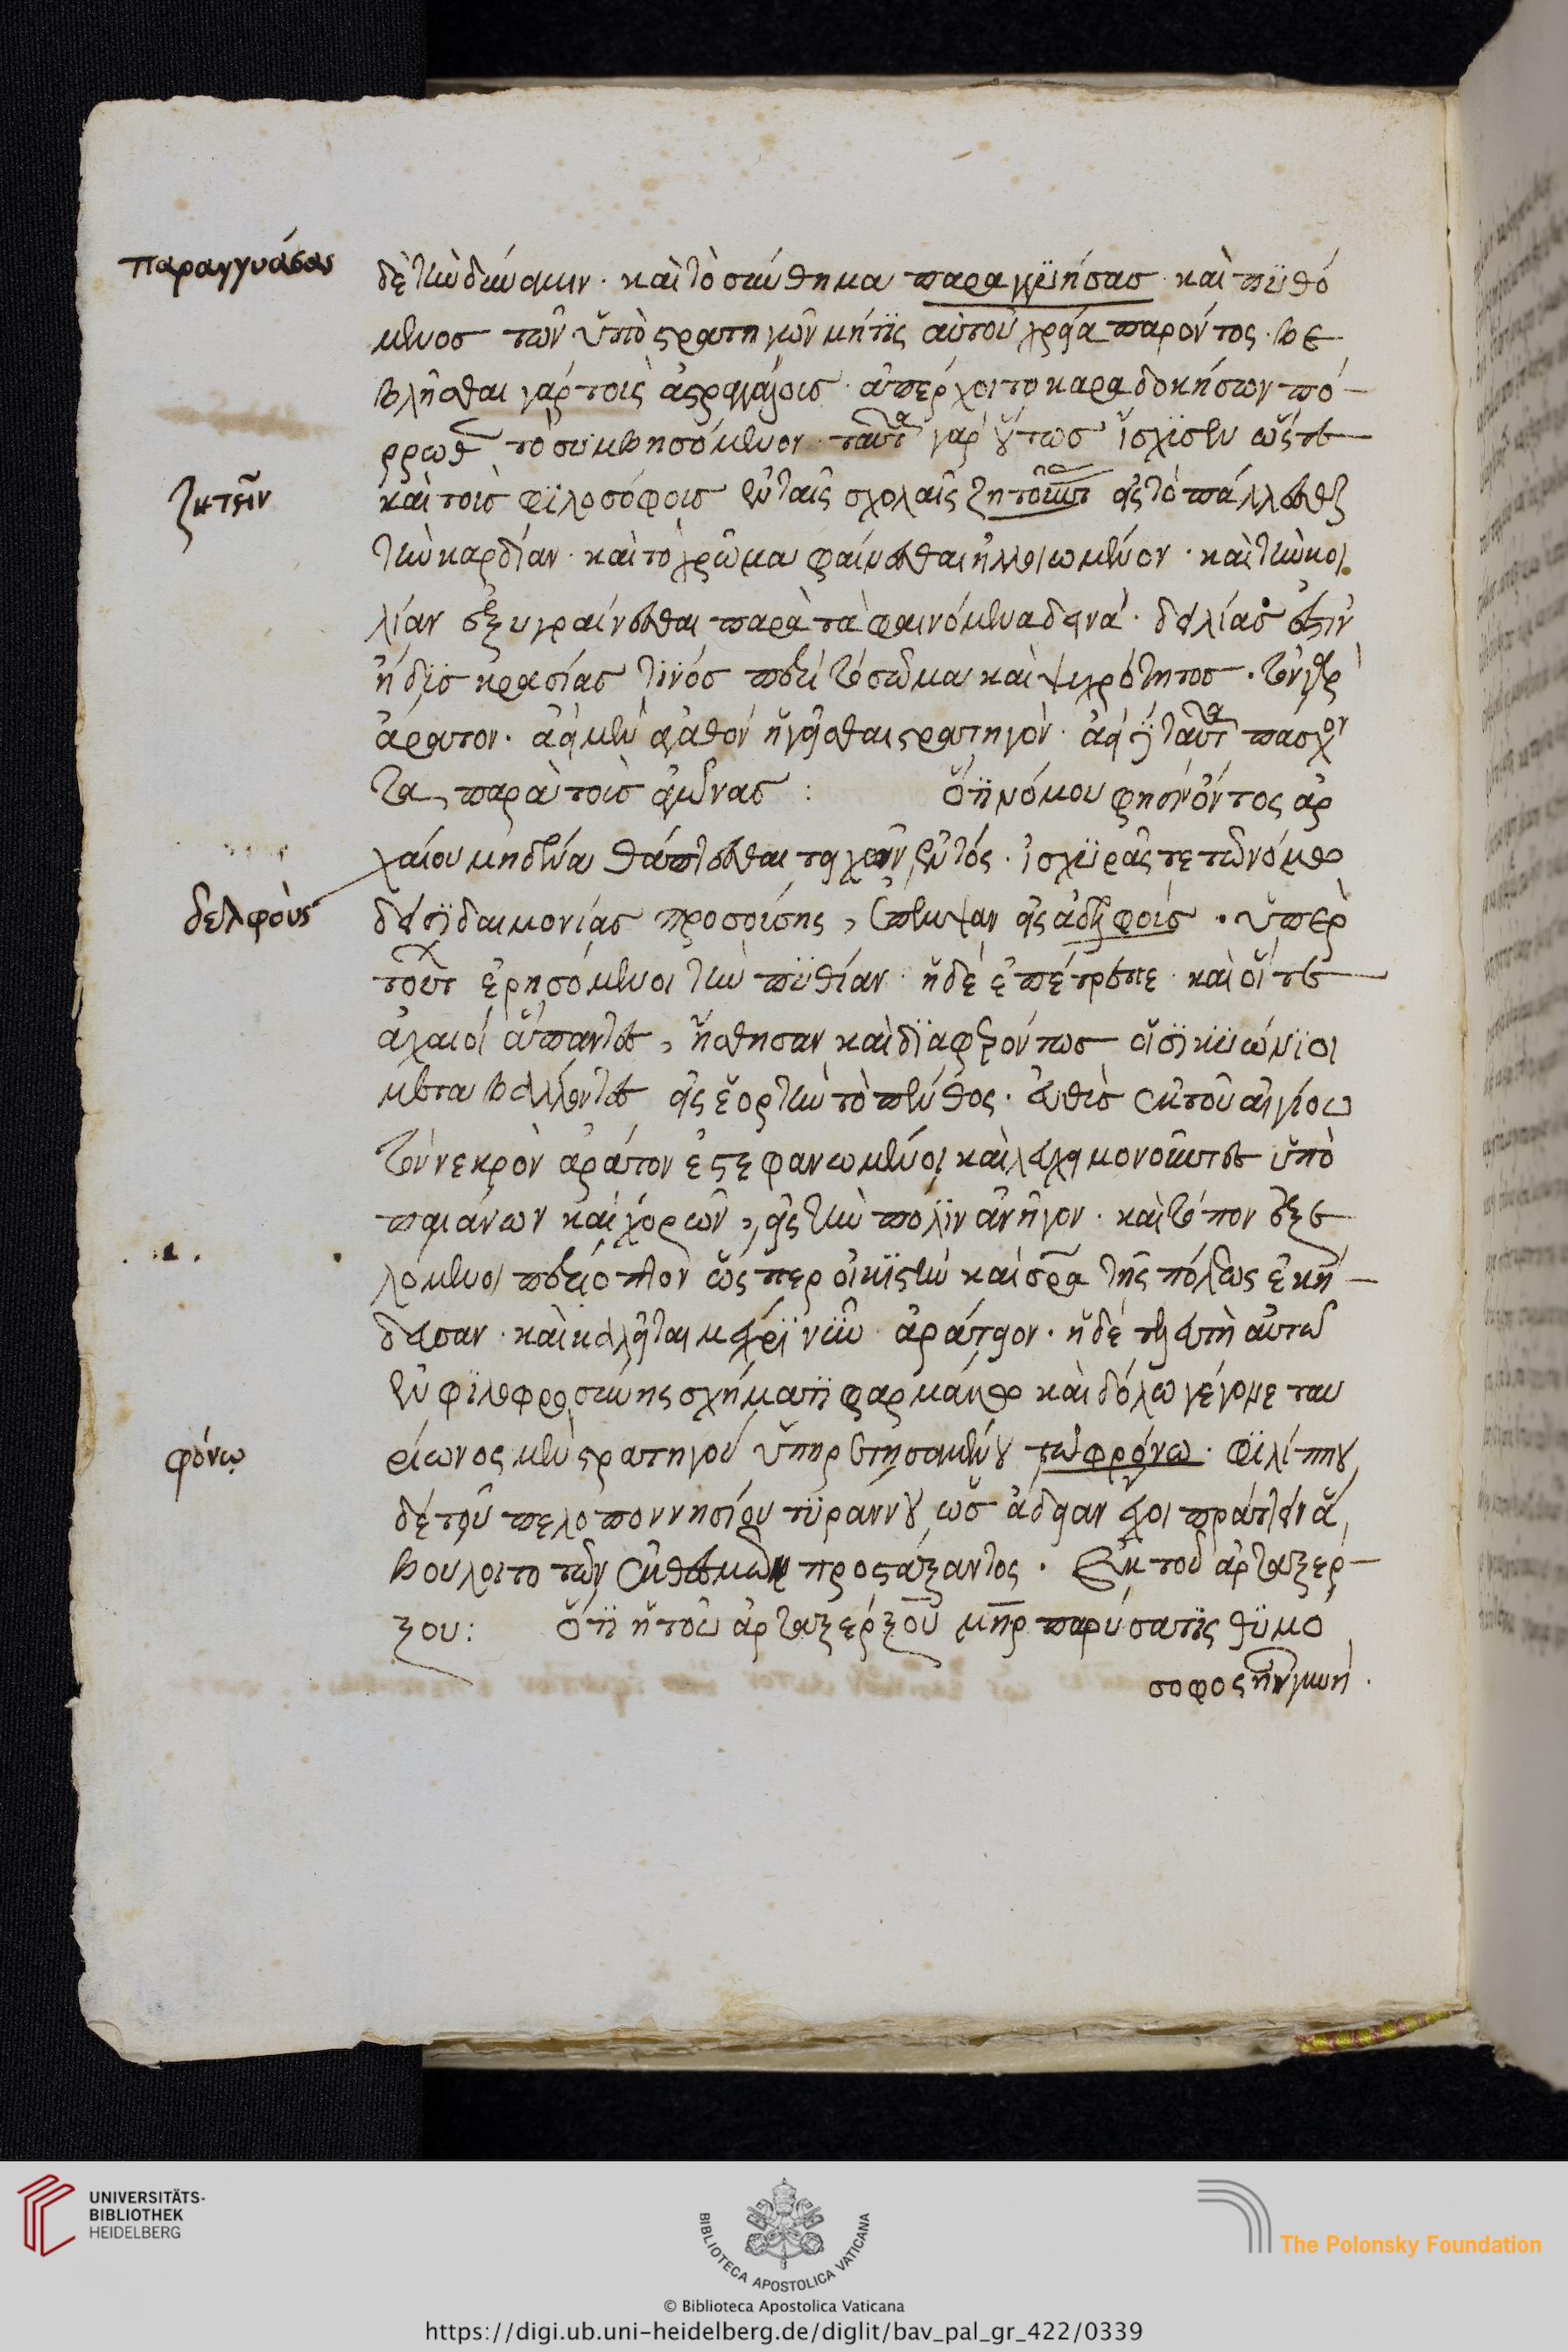 παραγγυάσας
δὲ τὴν δύναμιν · καὶ τὸ σύνθημα παραγγυήσας · καὶ πυθό
μενος τῶν ὑποστρατηγῶν μήτις αὐτοῦ χρεία παρόντος · βε
βλῆσθαι γάρ τοις ἀστραγάλοις · ἀπέρχοιτο καραδοκήσων πό-
ρρωθεν τὸ συμβησόμενον · ταῦτα γὰρ οὕτως ἴσχυσεν ὥστε
ζητεῖν
καὶ τοῖς φιλοσόφοις ἐν ταῖς σχολαῖς ζητοῦντας εἰ τὸ πάλλεσθαι
τὴν καρδίαν · καὶ τὸ χρῶμα φαίνεσθαι ἠλλοιωμένον · καὶ τὴν κοι
λίαν ἐξυγραίνεσθαι παρὰ τὰ φαινόμενα δεινὰ · δειλίας ἐστὶν
ἢ δυσκρασίας τινός περὶ τὸ σῶμα καὶ ψυχρότητος · τὸν γὰρ
ἄρατον · ἀεὶ μὲν ἀγαθόν ἡγεῖσθαι στρατηγὸν · ἀεὶ δὲ ταῦτα πάσχον
τα, παρὰ τοὺς ἀγῶνας : ὅτι νόμου φησὶν ὄντος ἀρ
χαίου μηδένα θάπτεσθαι τειχῶν ἐντός · ἰσχυρᾶς τε τῶ νόμω
δελφοὺς
δεισιδαιμονίας προσούσης, ἔπεμψαν εἰς ἀδελφοῖς · ὑπὲρ
τούτου ἐρησόμενοι τὴν πυθίαν · ἡ δὲ ἐπέτρεπε · καὶ οἵ τε
ἀχαιοί ἅπαντες, ἥσθησαν καὶ διαφερόντως οἱ σικυώνιοι
μεταβαλόντες εἰς ἑορτὴν τὸ πένθος · εὐθὺς ἐκ τοῦ αἰγίου
τὸν νεκρὸν ἀράτον ἐστεφανωμένοι καὶ λευχειμονοῦντες ὑπὸ
παιάνων καὶ χορῶν, εἰς τὴν πόλιν ἀνῆγον · καὶ τόπον ἐξε
λόμενοι περίοπτον ὥσπερ οἰκιστὴν καὶ σωτῆρα τῆς πόλεως ἐκή-
δευσαν · καὶ καλεῖται μέχρι νῦν ἀράτειον · ἡ δὲ τελευτὴ αὐτῶ
ἐν φιλοφροσύνης σχήματι φαρμάκω καὶ δόλω γέγονε ταυ
φόνῳ
ρίωνος μὲν στρατηγοῦ ὑπηρετησαμένου τῶ φρόνω · φιλίππου
δέ τοῦ πελοποννησίου τυράννου, ὡς ἄδειαν ἔχοι πράττειν ἃ
βούλοιτο τῶν ἐκθέσμων προστάξαντος · Ἐκ τοῦ ἀρταξέρ-
ξου : ὅτι ἡ τοῦ ἀρταξέρξου μήτηρ παρύσατις θυμο
σοφος ἦν γυνή ·
UNIVERSITÄTS-
BIBLIOTHEK
HEIDELBERG
BIBLIOTECA APOSTOLICA VATICANA
The Polonsky Foundation
© Biblioteca Apostolica Vaticana
https://digi.ub.uni-heidelberg.de/diglit/bav_pal_gr_422/0339